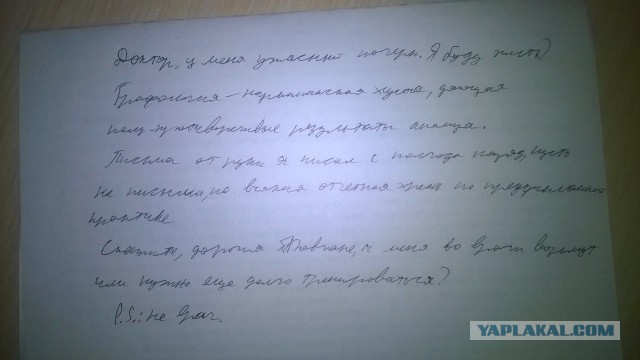 Доктор, у меня ужасный почерк. Я буду жить)
Графология - наркоманская хуета, дающая
полу-противоречивые результаты анализа.
Письма от руки я писал с полгода назад, пусть
не письма, но всякая отчетная хрень по преддипломной
практике.
Скажите, дорогие ЯПовчане, меня во врачи возьмут
или нужно еще долго тренироваться?
P.S.: не врач.
YAPLAKAL.COM